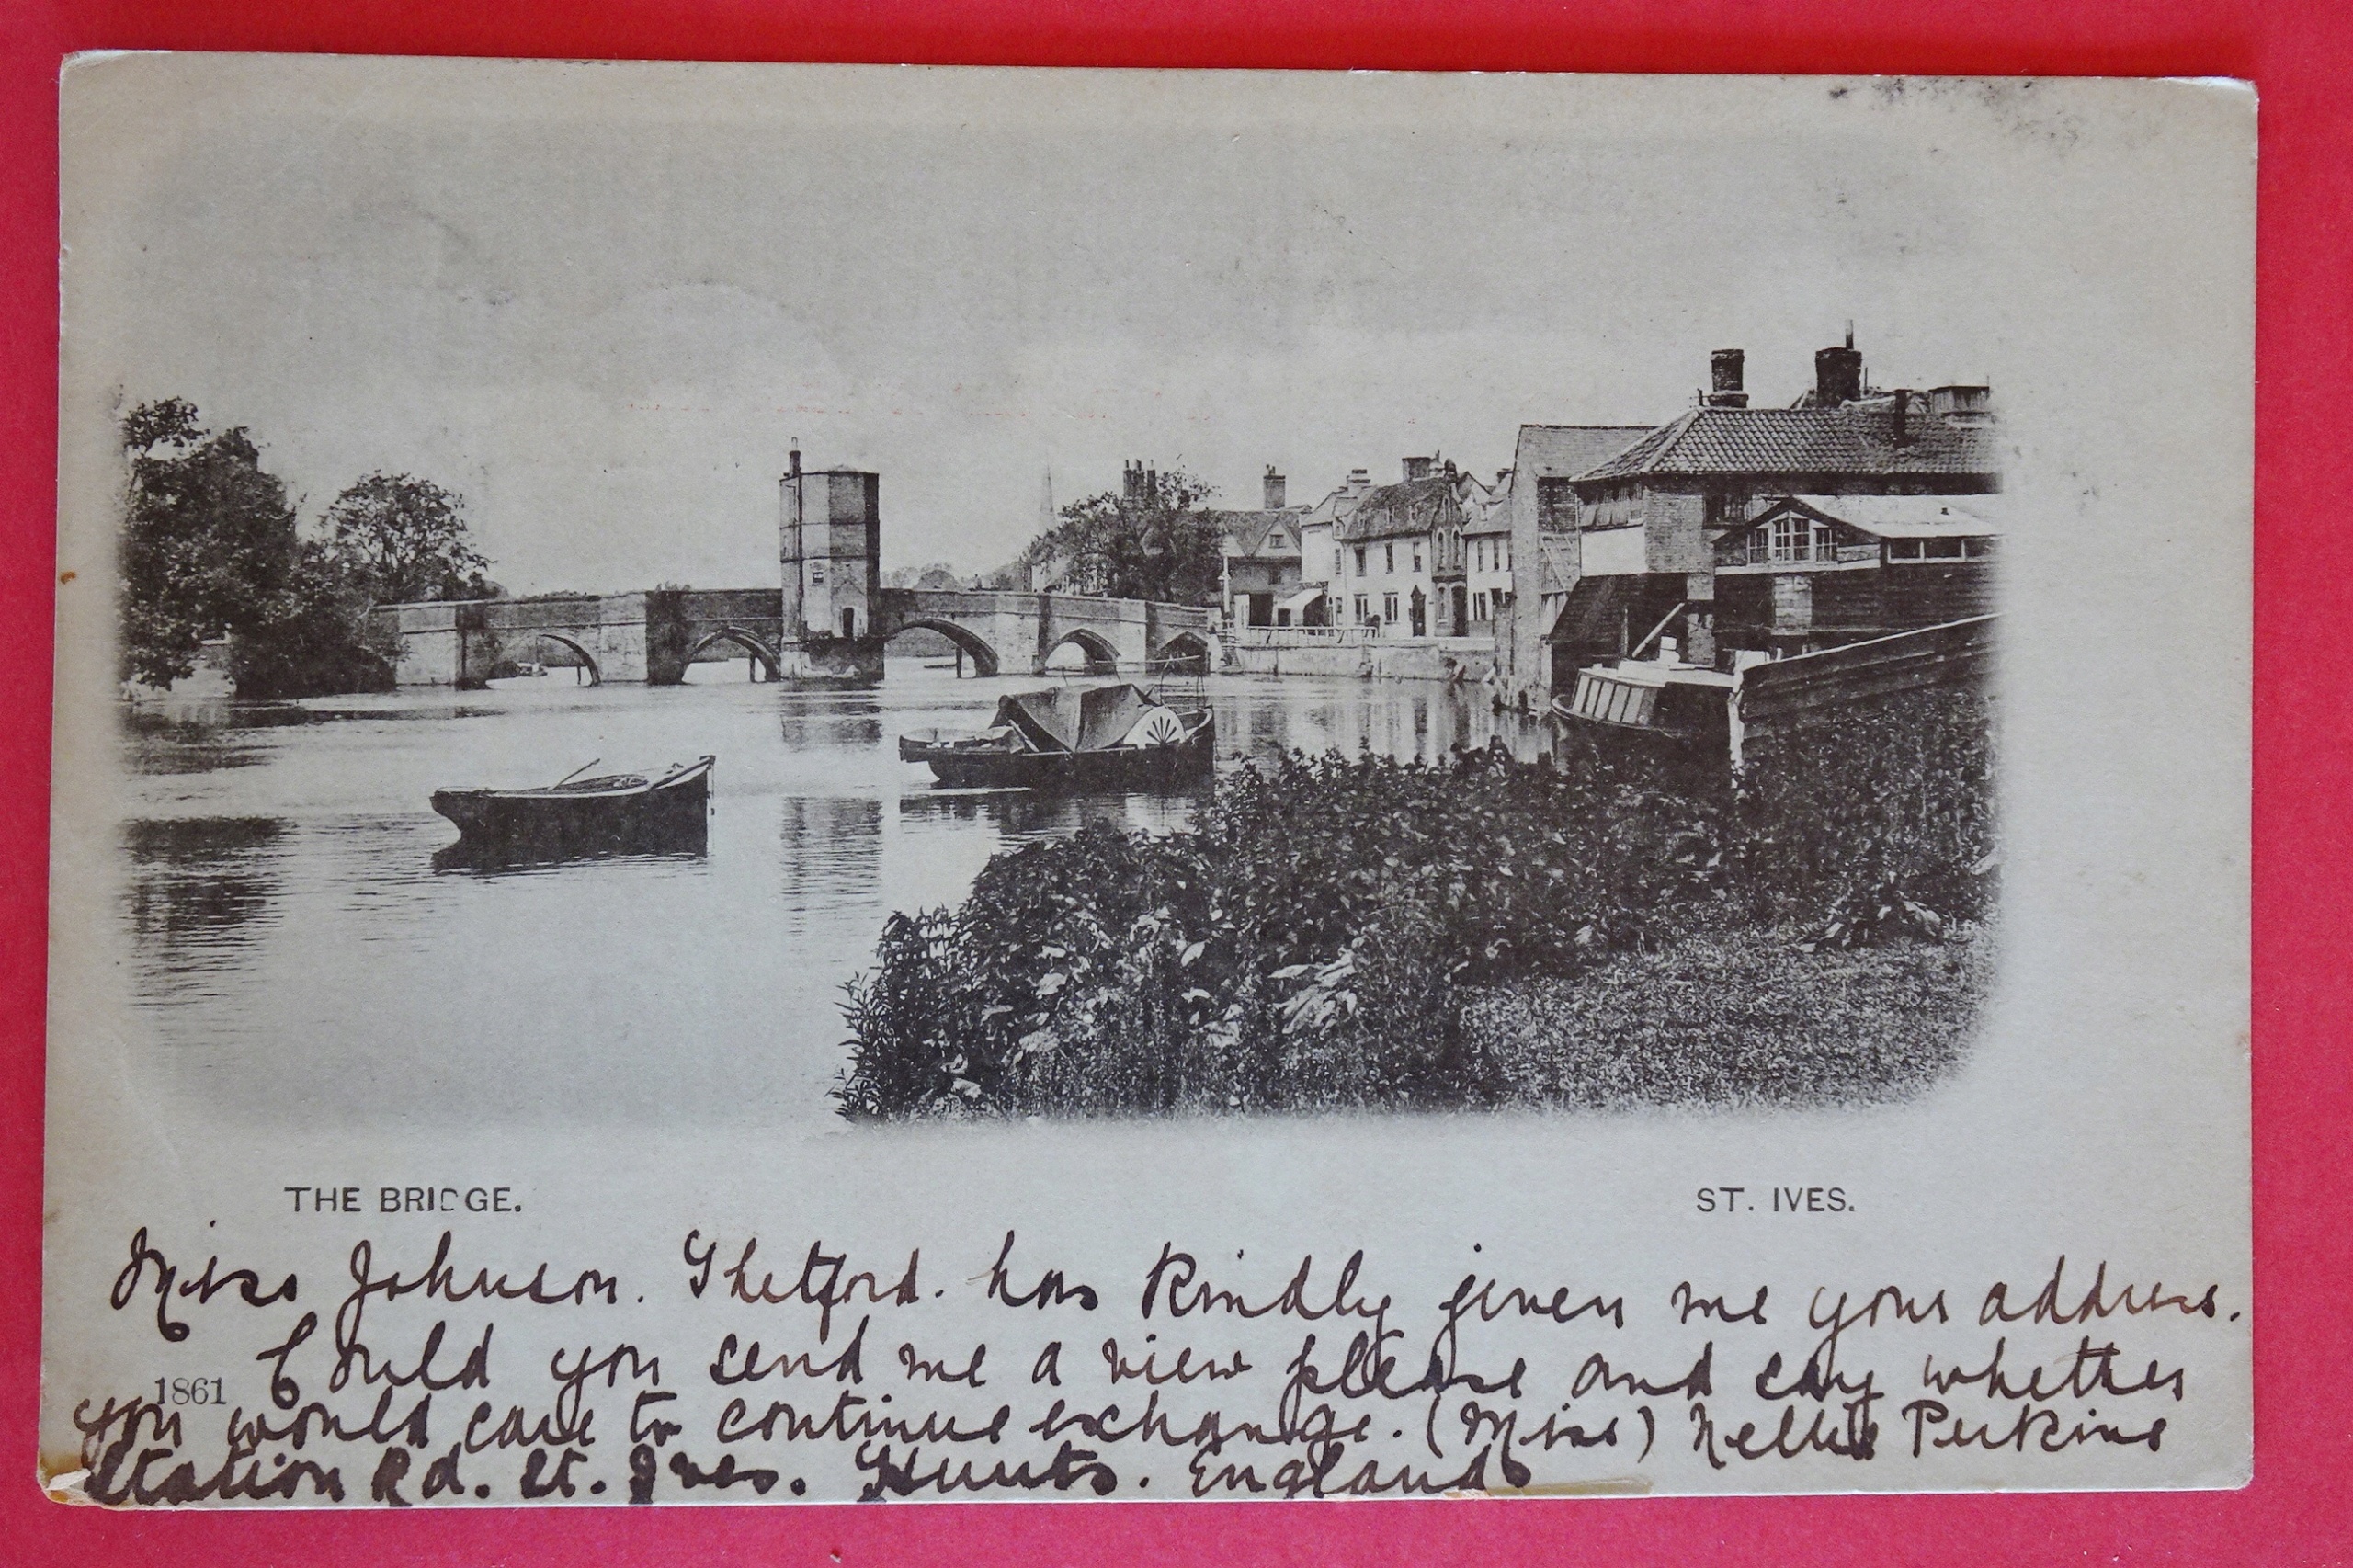 THE BRIDGE.
ST. IVES.
Miss Johnson. Thetford. has kindly given me your address.
Could you send me a view please and say whether
1861
you would care to continue exchange. (Miss) Nellie Perkins
Station Rd. St. Ives. Hunts. England